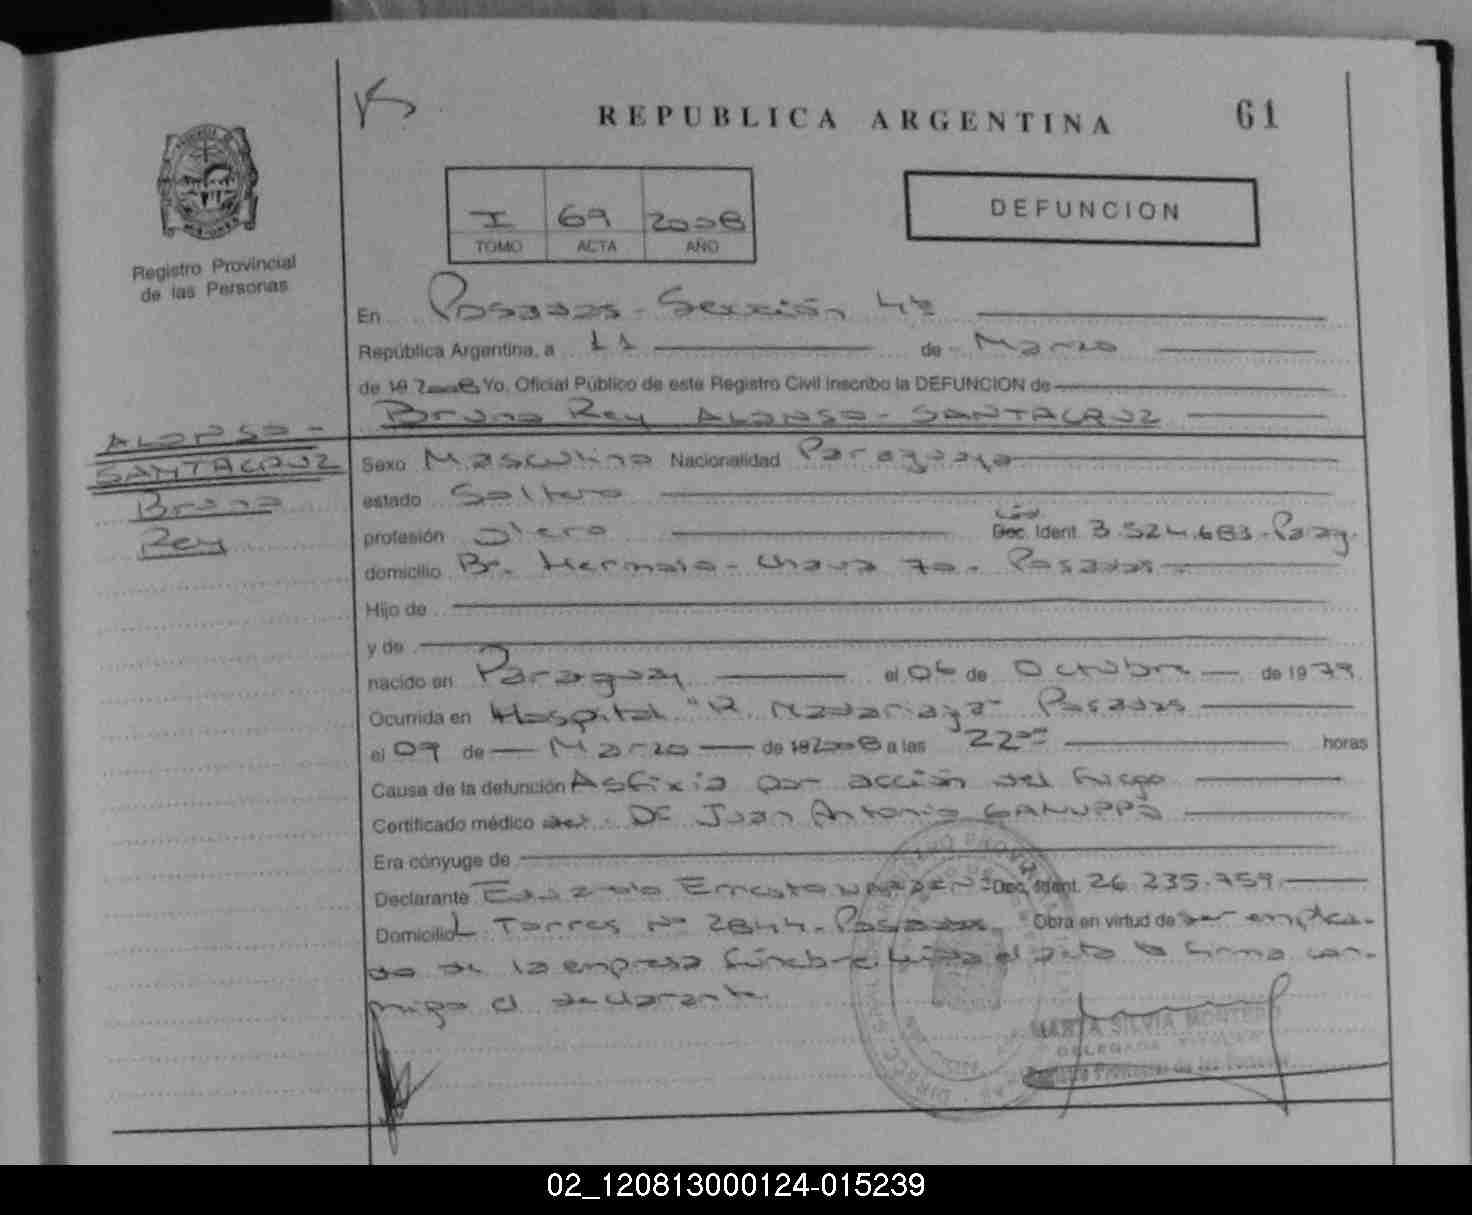 REPUBLICA ARGENTINA
61
I 69 2008
TOMO ACTA AÑO
DEFUNCION
Registro Provincial
de las Personas
En Posadas - Sección 4ta
República Argentina, a 11 de Marzo
de 19 2008 Yo, Oficial Público de este Registro Civil inscribo la DEFUNCION de
Bruno Rey ALONSO - SANTACRUZ
ALONSO -
SANTACRUZ
Bruno
Rey
Sexo Masculino Nacionalidad Paraguaya
estado Soltero
profesión Olero Céd. Doc. Ident. 3.524.683 - Parag.
domicilio Bo. Hermoso - Chava 70 - Posadas -
Hijo de
y de
nacido en Paraguay el 06 de Octubre de 1979
Ocurrida en Hospital "R Madariaga" Posadas
el 09 de Marzo de 19 2008 a las 22 00 horas
Causa de la defunción Asfixia por acción del fuego
Certificado médico del Dr Juan Antonio
Era cónyuge de
Declarante Eduardo Ernesto Doc. Ident. 26.235.759
Domicilio L. Torres No 2844 - Posadas. Obra en virtud de ser emplea-
do de la empresa fúnebre. Leída el acta la firma con-
migo el declarante.
MARTA SILVIA MONTERO
DELEGADA TITULAR
Registro Provincial de las Personas
02_120813000124-015239